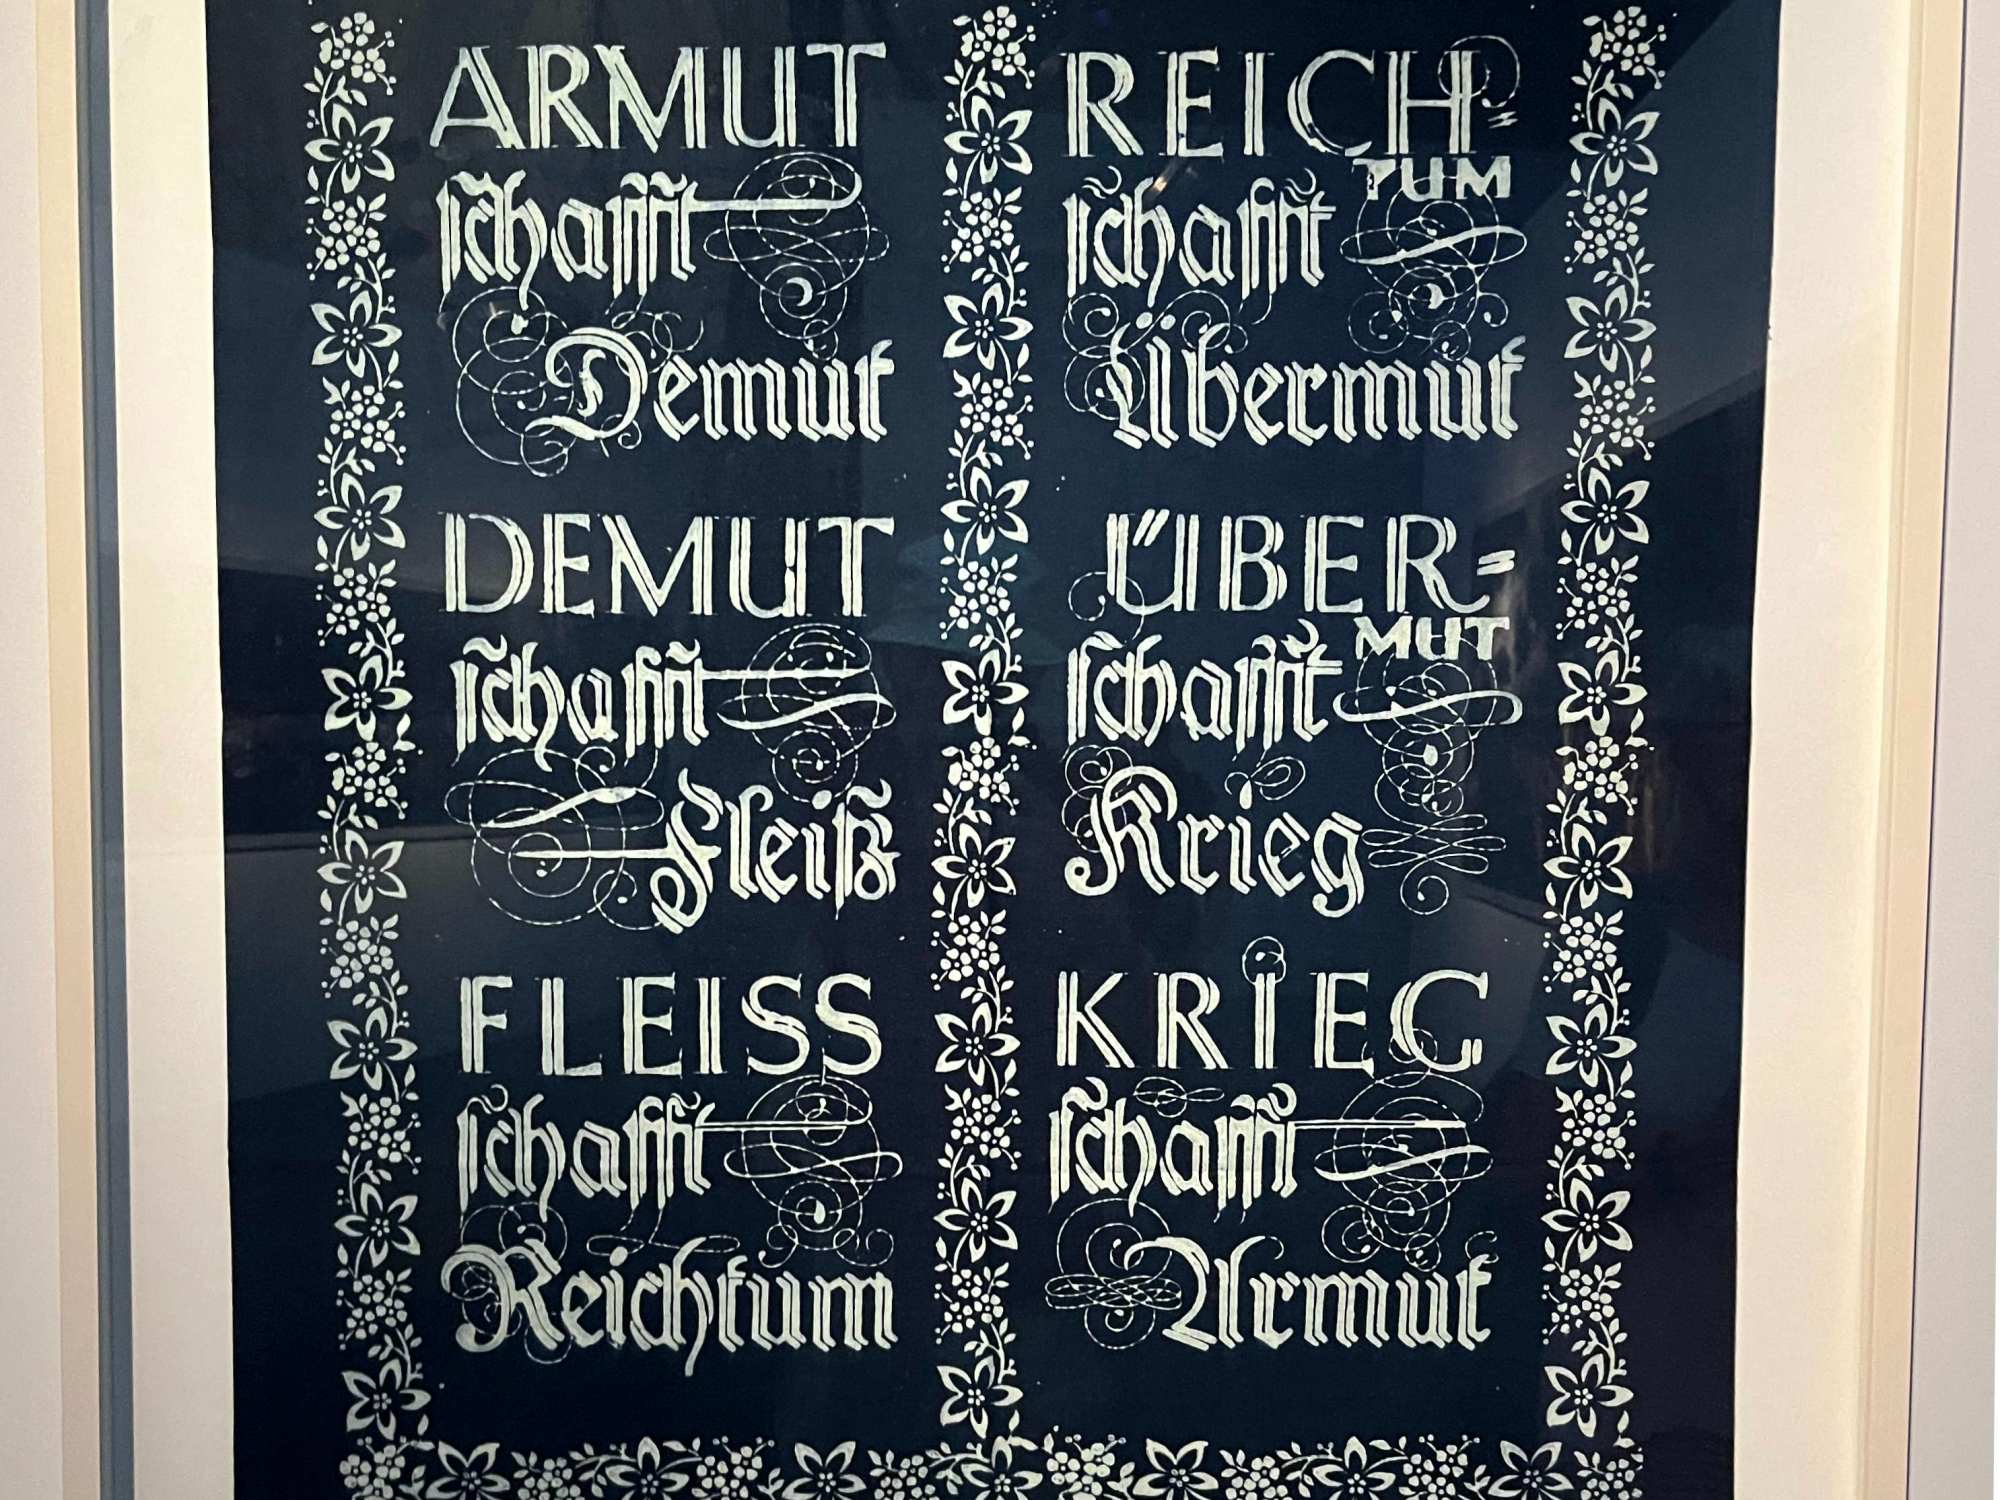 ARMUT
schafft
Demut
DEMUT
schafft
Fleiß
FLEISS
schafft
Reichtum
REICH=
TUM
schafft
Übermut
ÜBER=
MUT
schafft
Krieg
KRIEG
schafft
Armut